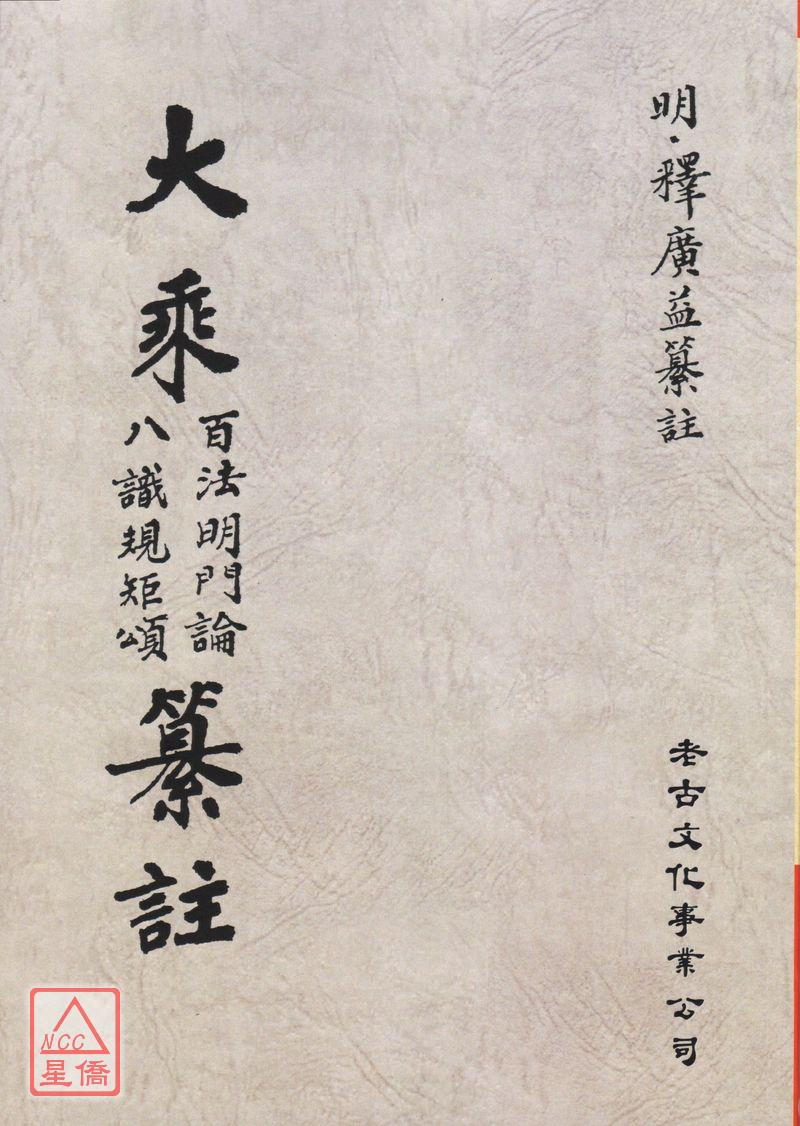 明·釋廣益纂註
老古文化事業公司
大乘
百法明門論
八識規矩頌
纂註
NCC
星僑